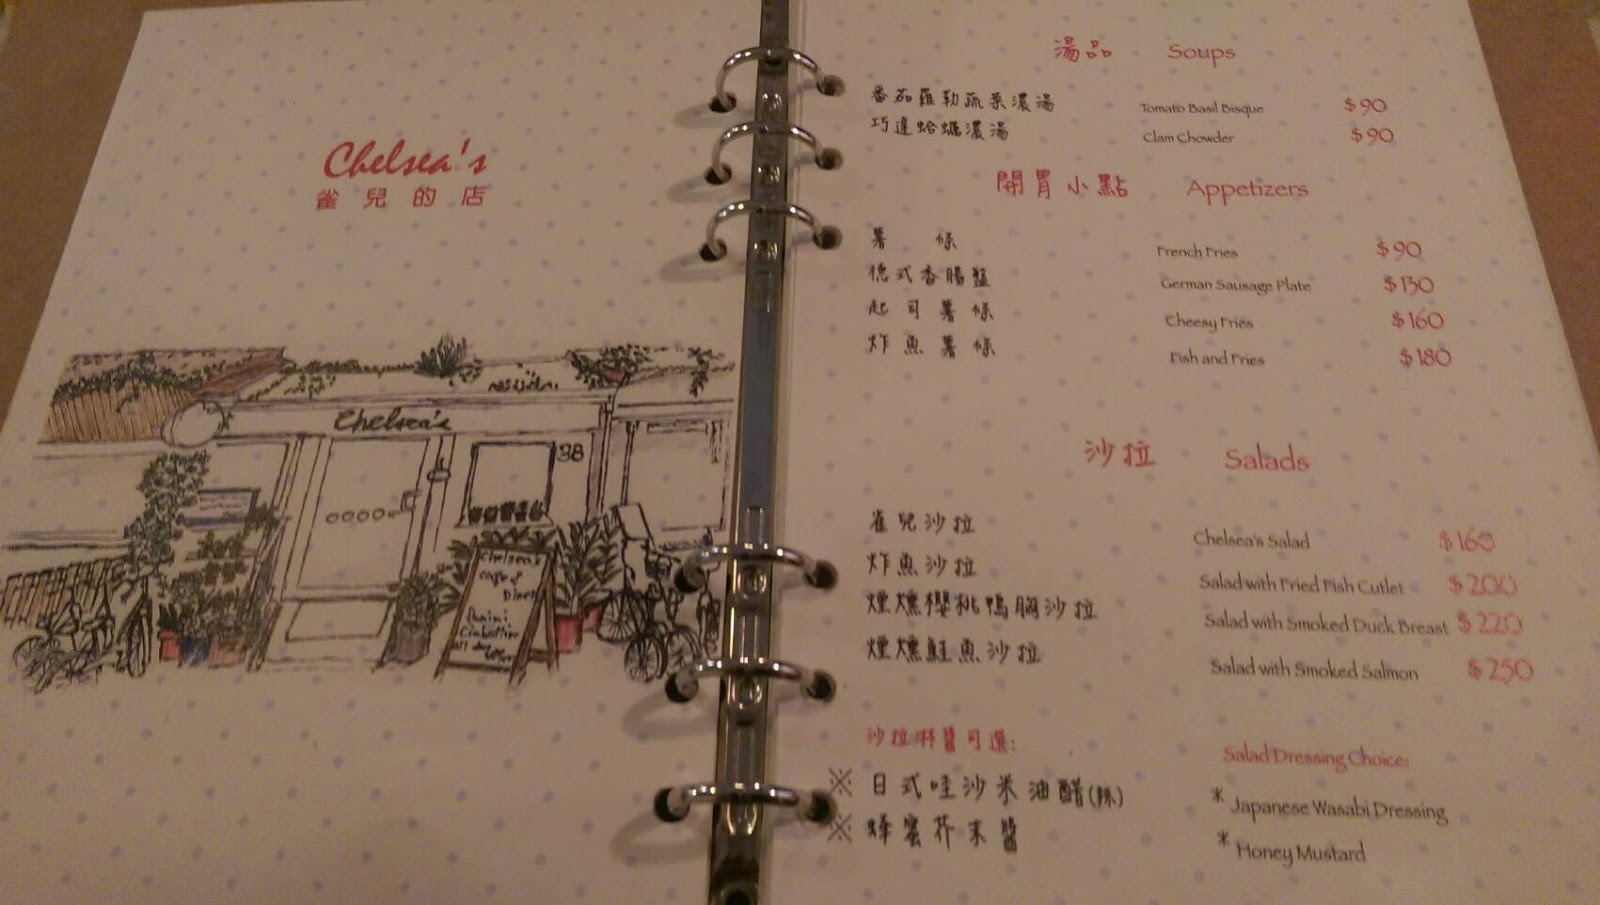 Chelsea's
雀兒的店
Chelsea's
38
Chelsea's
cafe &
Diner
Panini
湯品 Soups
番茄羅勒蔬菜濃湯 Tomato Basil Bisque $90
巧達蛤蠣濃湯 Clam Chowder $90
開胃小點 Appetizers
薯條 French Fries $90
德式香腸盤 German Sausage Plate $130
起司薯條 Cheesy Fries $160
炸魚薯條 Fish and Fries $180
沙拉 Salads
雀兒沙拉 Chelsea's Salad $160
炸魚沙拉 Salad with Fried Fish Cutlet $200
煙燻櫻桃鴨胸沙拉 Salad with Smoked Duck Breast $220
煙燻鮭魚沙拉 Salad with Smoked Salmon $250
沙拉淋醬可選: Salad Dressing Choice:
※ 日式哇沙米油醋(辣) * Japanese Wasabi Dressing
※ 蜂蜜芥末醬 * Honey Mustard